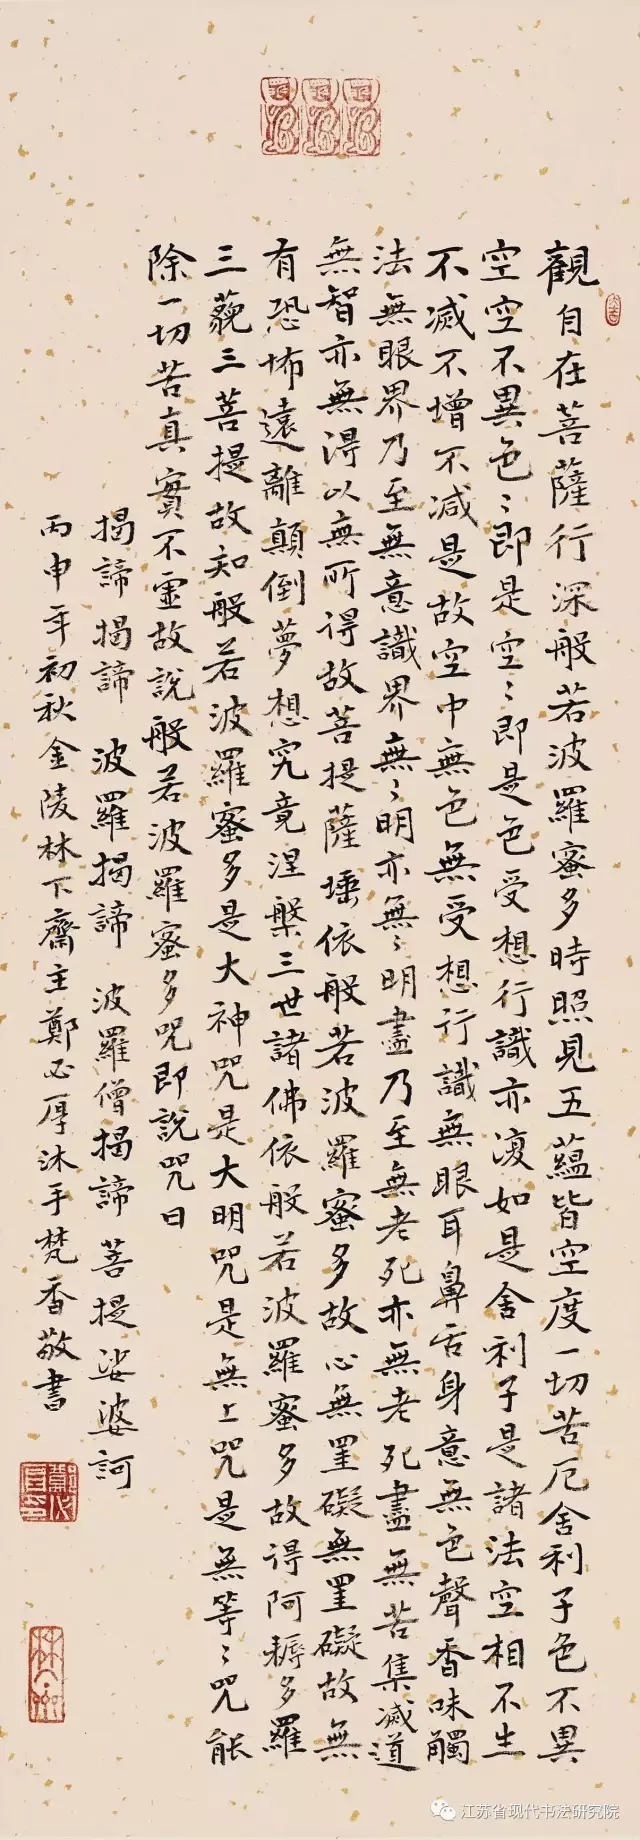 觀自在菩薩行深般若波羅蜜多時照見五蘊皆空度一切苦厄舍利子色不異
空空不異色〻即是空〻即是色受想行識亦復如是舍利子是諸法空相不生
不滅不增不減是故空中無色無受想行識無眼耳鼻舌身意無色聲香味觸
法無眼界乃至無意識界無〻明亦無〻明盡乃至無老死亦無老死盡無苦集滅道
無智亦無得以無所得故菩提薩埵依般若波羅蜜多故心無罣礙無罣礙故無
有恐怖遠離顛倒夢想究竟涅槃三世諸佛依般若波羅蜜多故得阿耨多羅
三藐三菩提故知般若波羅蜜多是大神咒是大明咒是無上咒是無等〻咒能
除一切苦真實不虛故說般若波羅蜜多咒即說咒曰
揭諦揭諦 波羅揭諦 波羅僧揭諦 菩提娑婆訶
丙申年初秋金陵林下齋主鄭必厚沐手梵香敬書
江苏省现代书法研究院